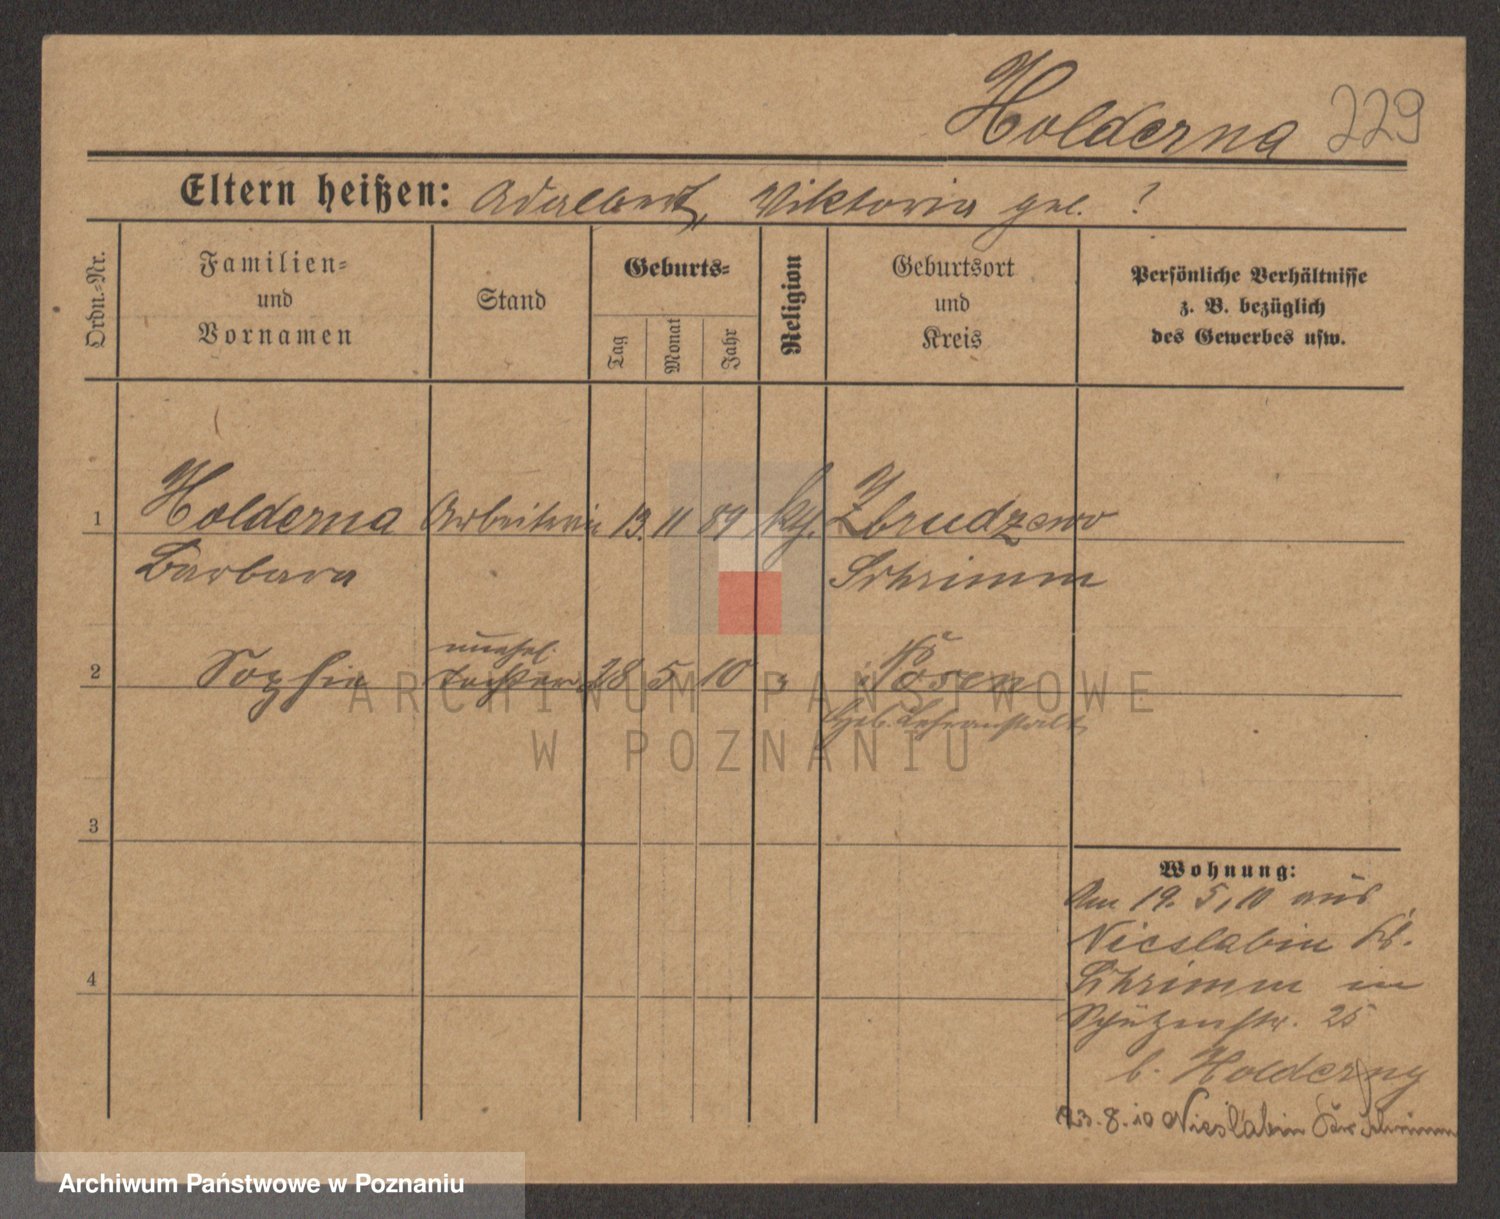 Holderna 229
Eltern heißen: Adalbert, Viktoria geb. ?
Ordn.-Nr.
Familien- und Vornamen
Stand
Geburts-
Tag
Monat
Jahr
Religion
Geburtsort und Kreis
Persönliche Verhältnisse z. B. bezüglich des Gewerbes usw.
1 Holderna Arbeiterin 13. 11 89 kg. Zbrudzewo
Barbara Schrimm
unehel.
2 Sophie Tochter 28 5 10 " Posen
Heb. Lehranstalt
3
4
Wohnung:
Am 19. 5. 10 aus
Nieslabin Kr.
Schrimm in
Schützenstr. 25
b. Holderny
23. 8. 10 Nieslabin Kr. Schrimm
ARCHIWUM PAŃSTWOWE
W POZNANIU
Archiwum Państwowe w Poznaniu